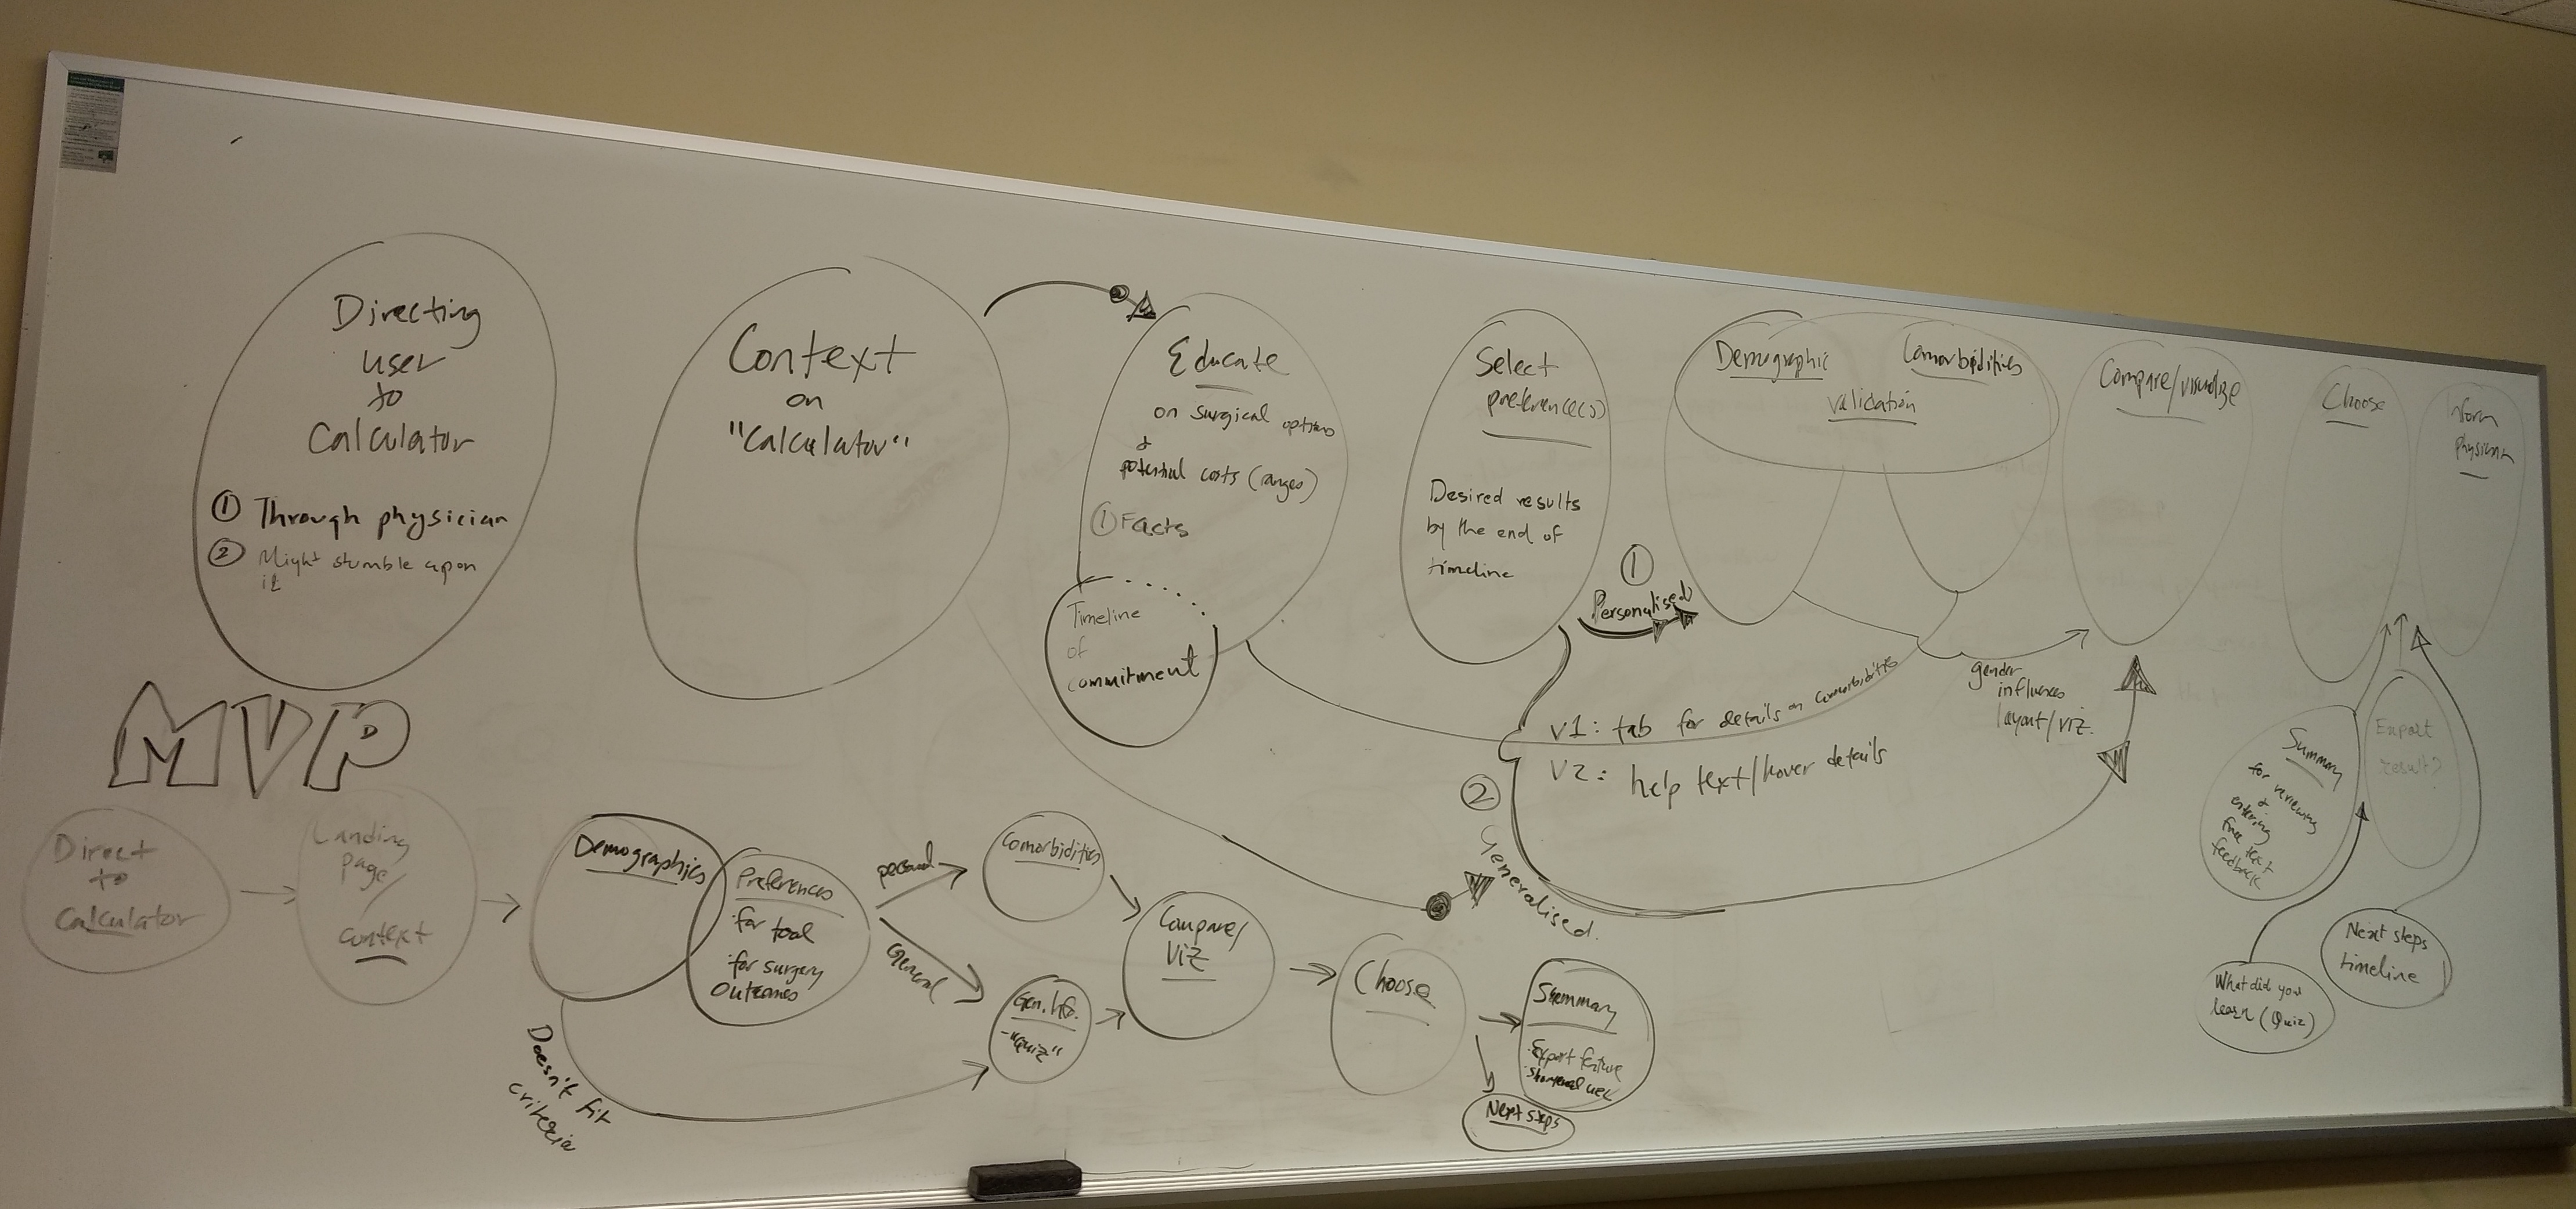 Directing
user
to
Calculator
① Through physician
② Might stumble upon
it
Context
on
"Calculator"
Educate
on surgical options
&
potential costs (ranges)
① Facts
Timeline
of
commitment
Select
preference(s)
Desired results
by the end of
timeline
①
Personalised
Demographic
Comorbidities
validation
Compare/visualize
Choose
Inform
physician
gender
influences
layout/viz.
V1: tab for details on comorbidities
V2: help text/hover details
②
Generalised.
Summary
for reviewing
&
entering
free text
feedback
Export
result?
Next steps
timeline
What did you
learn (Quiz)
MVP
Direct
to
Calculator
Landing
page/
context
Demographics
Preferences
for tool
for surgery
outcomes
personal
General
Doesn't fit
criteria
Comorbidities
Gen. Info.
- "quiz"
Compare/
Viz
Choose
Summary
Export feature
Next steps